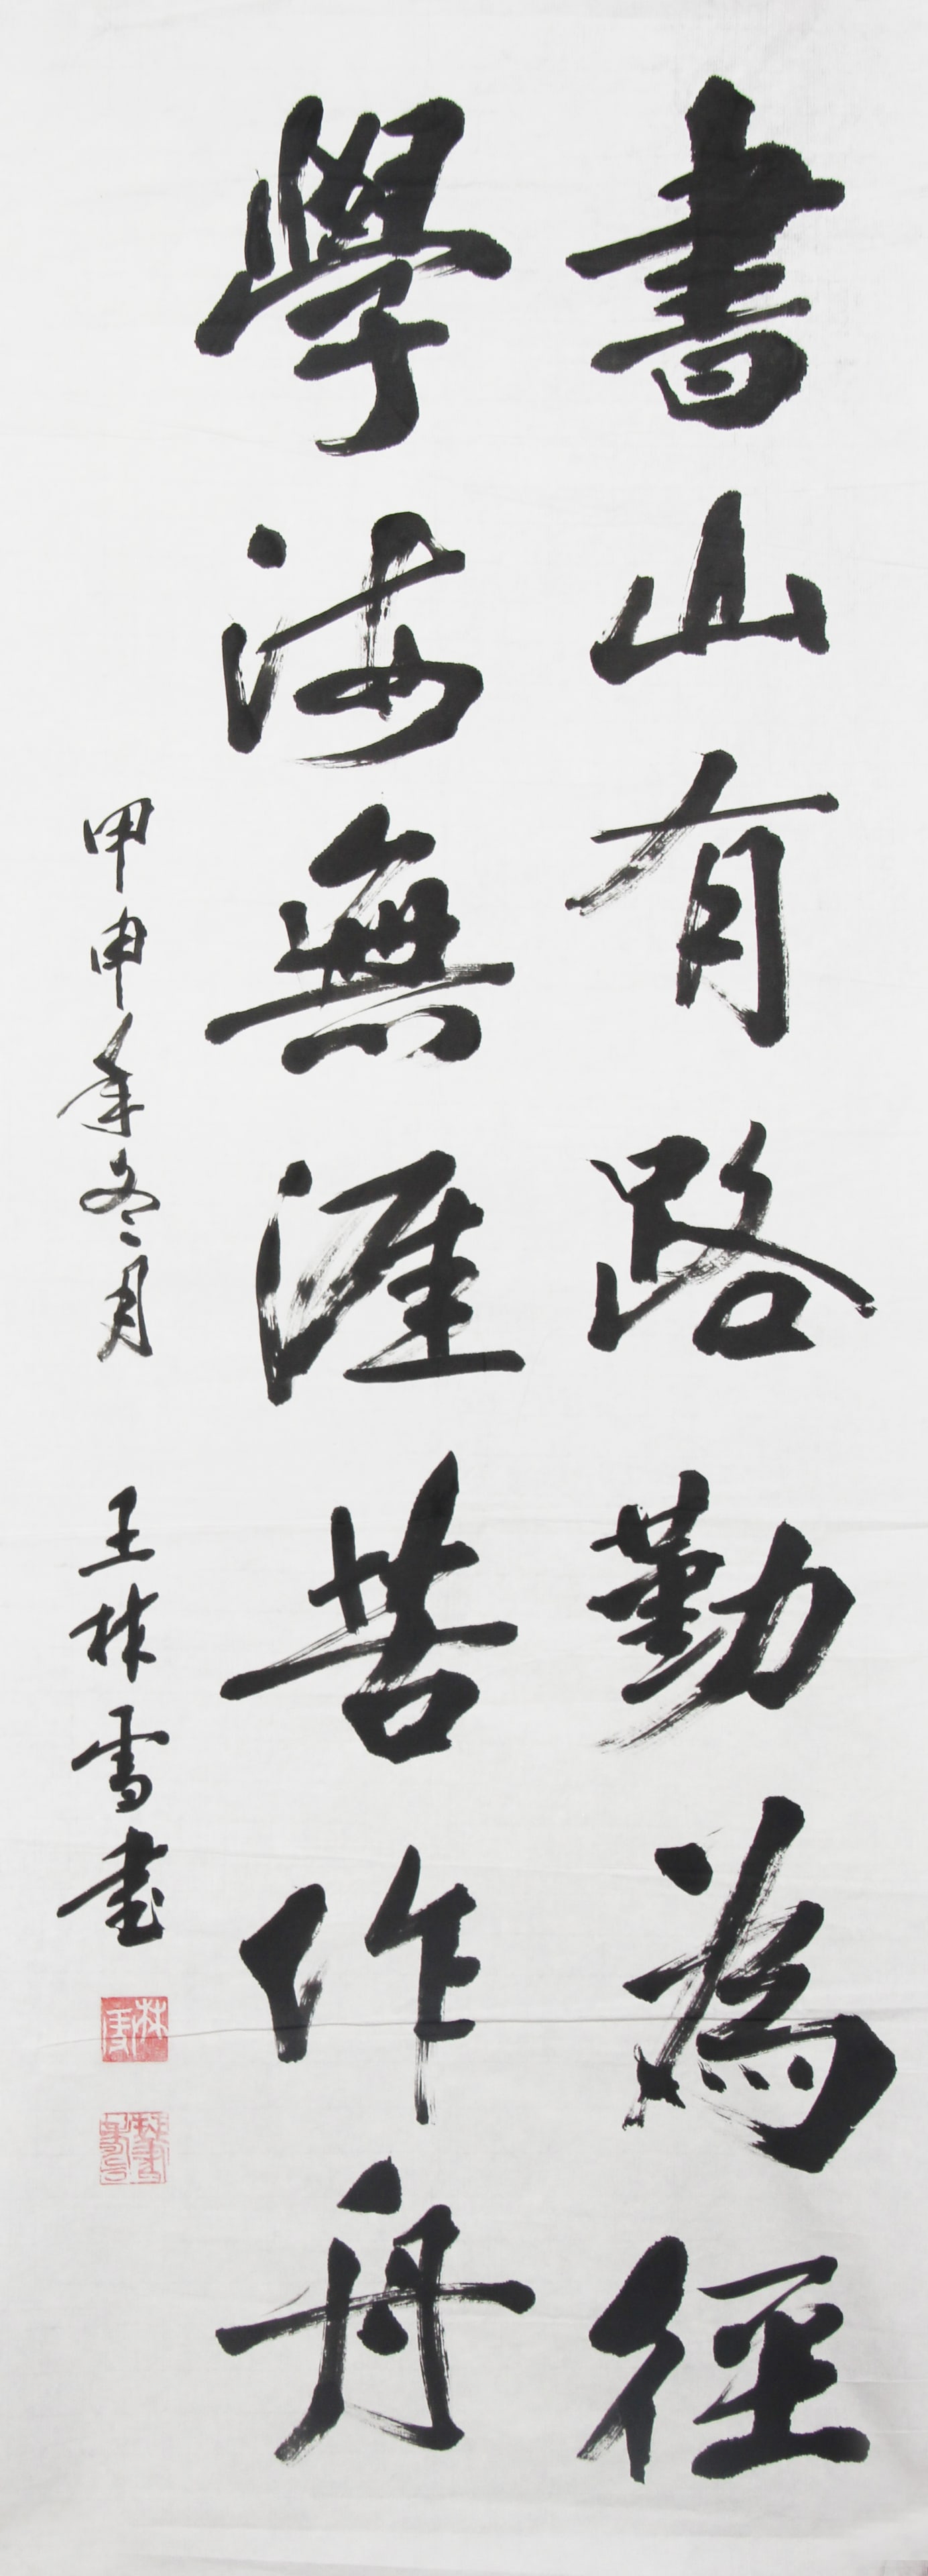 書山有路勤為徑
學海無涯苦作舟
甲申年冬月 王林雪書